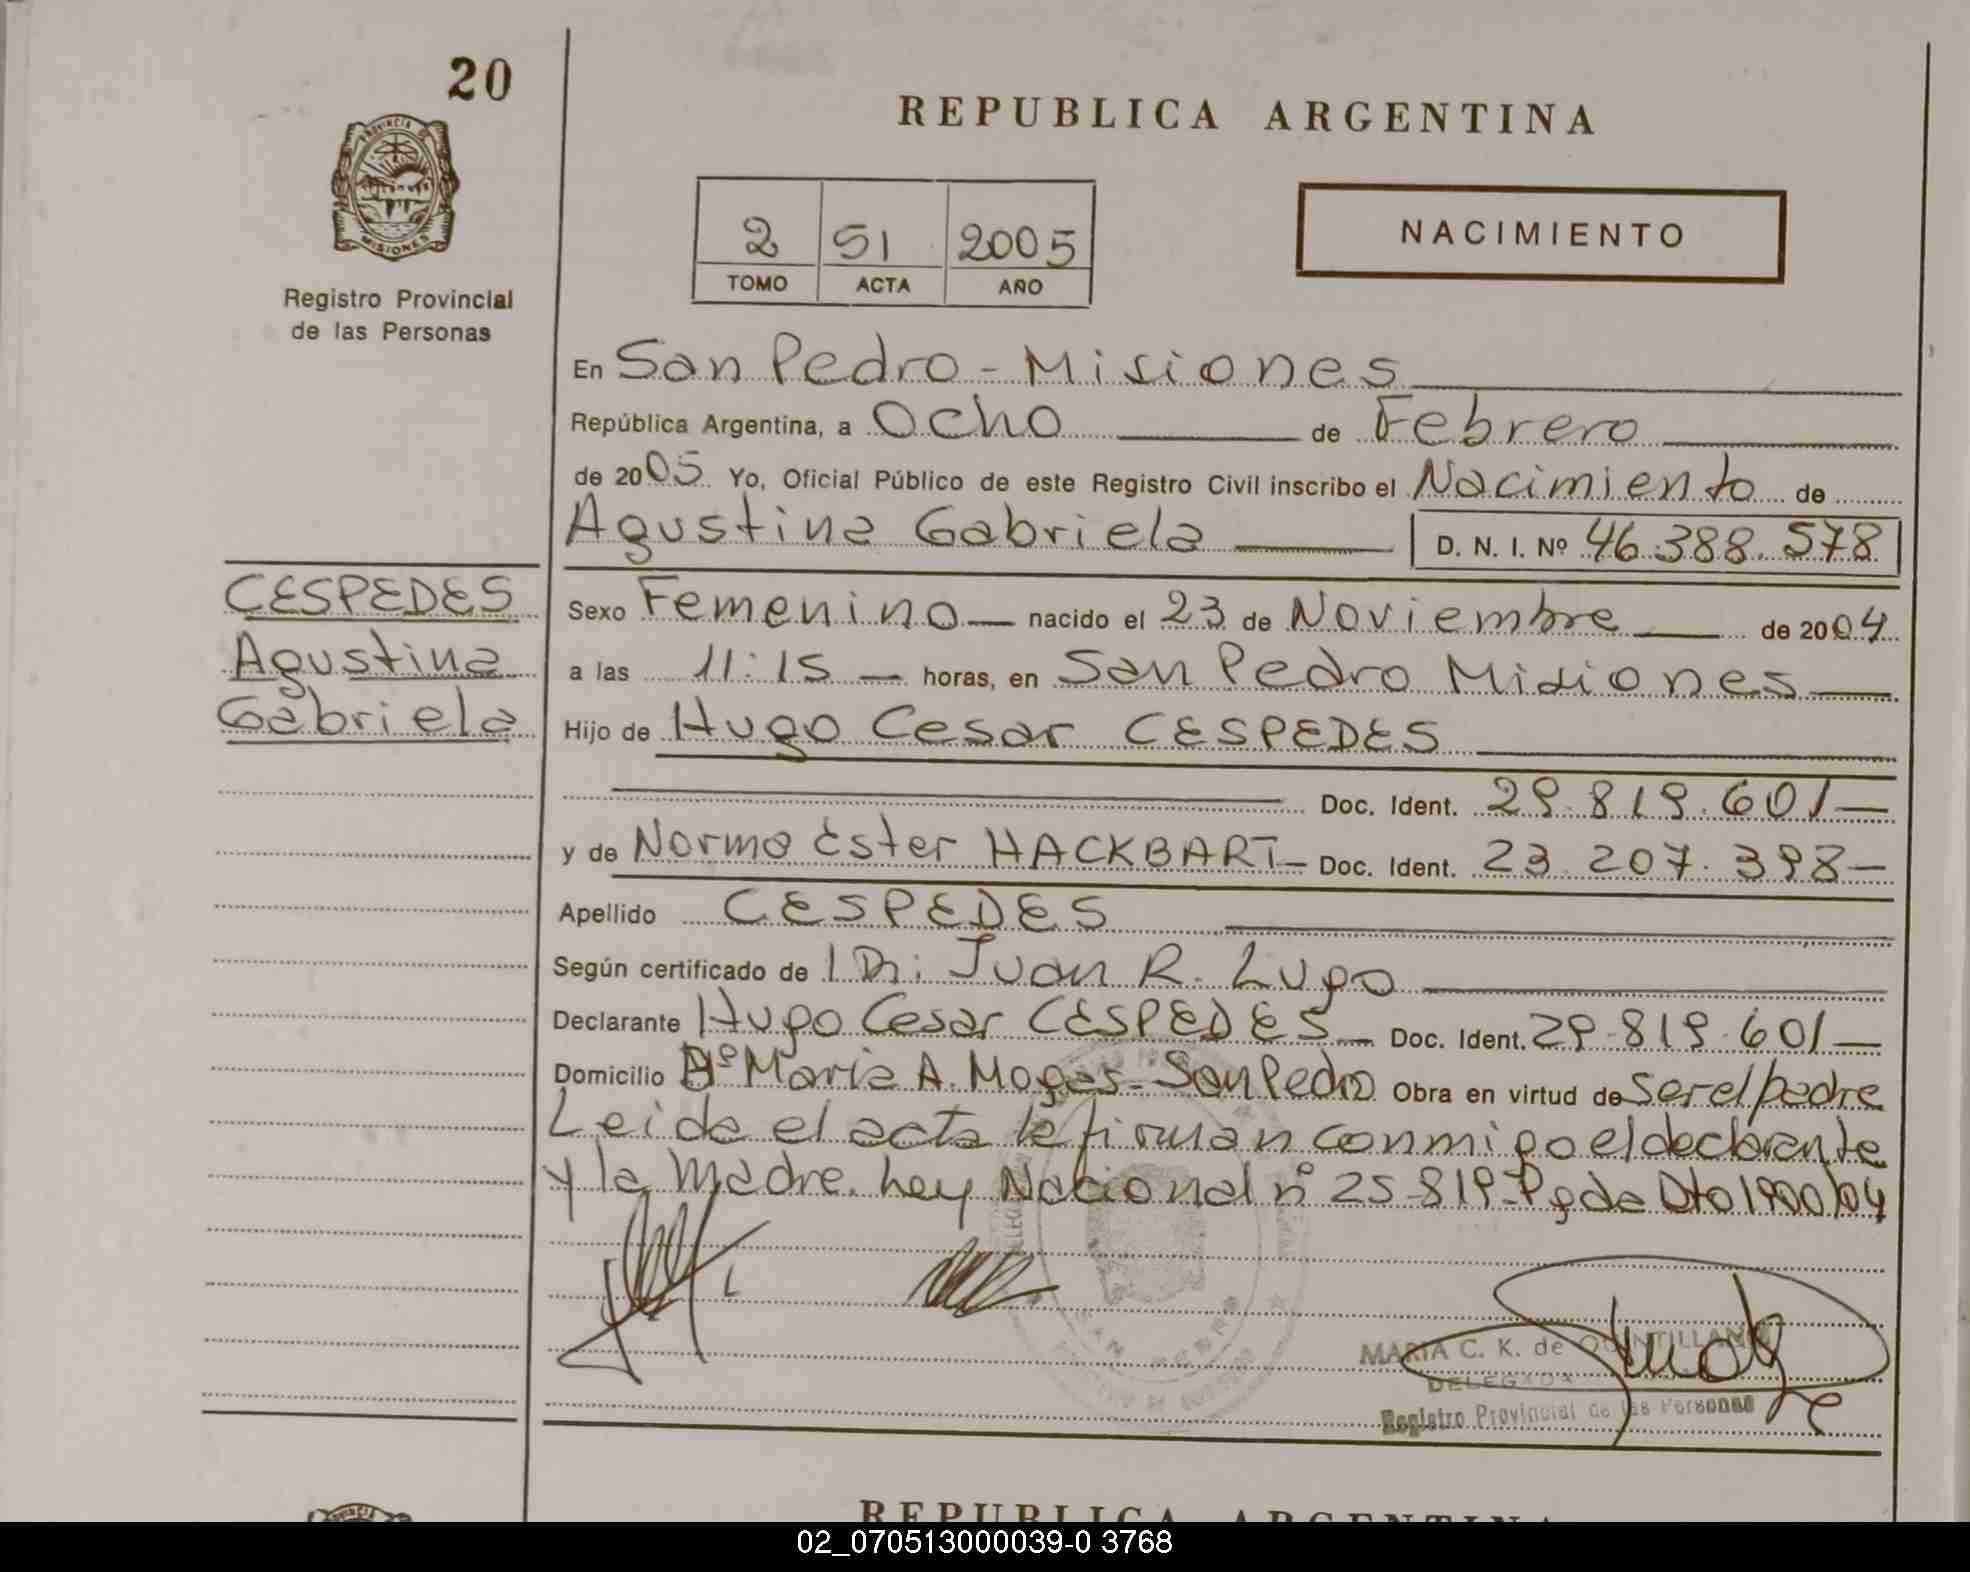 20
REPUBLICA ARGENTINA
PROVINCIA DE
MISIONES
2 51 2005
TOMO ACTA AÑO
NACIMIENTO
Registro Provincial
de las Personas
En San Pedro - Misiones
República Argentina, a Ocho de Febrero
de 2005 Yo, Oficial Público de este Registro Civil inscribo el Nacimiento de
Agustina Gabriela D. N. I. Nº 46.388.578
CESPEDES
Agustina
Gabriela
Sexo Femenino nacido el 23 de Noviembre de 2004
a las 11:15 horas, en San Pedro Misiones
Hijo de Hugo Cesar CESPEDES
Doc. Ident. 29.819.601
y de Norma Ester HACKBART Doc. Ident. 23 207.398
Apellido CESPEDES
Según certificado de Dr: Juan R. Lugo
Declarante Hugo Cesar CESPEDES Doc. Ident. 29.819.601
Domicilio Bº Maria A. Mogas - San Pedro Obra en virtud de ser el padre
Leida el acta la firman conmigo el declarante
y la Madre. Ley Nacional nº 25.819 - Dto 1900/04
MARIA C. K. de QUINTILLAN
DELEGADA
Registro Provincial de las Personas
SAN PEDRO
REPUBLICA ARGENTINA
02_070513000039-0 3768